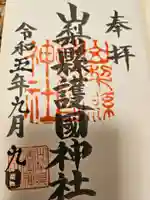 奉拝
山梨縣護國神社
令和五年九月九日